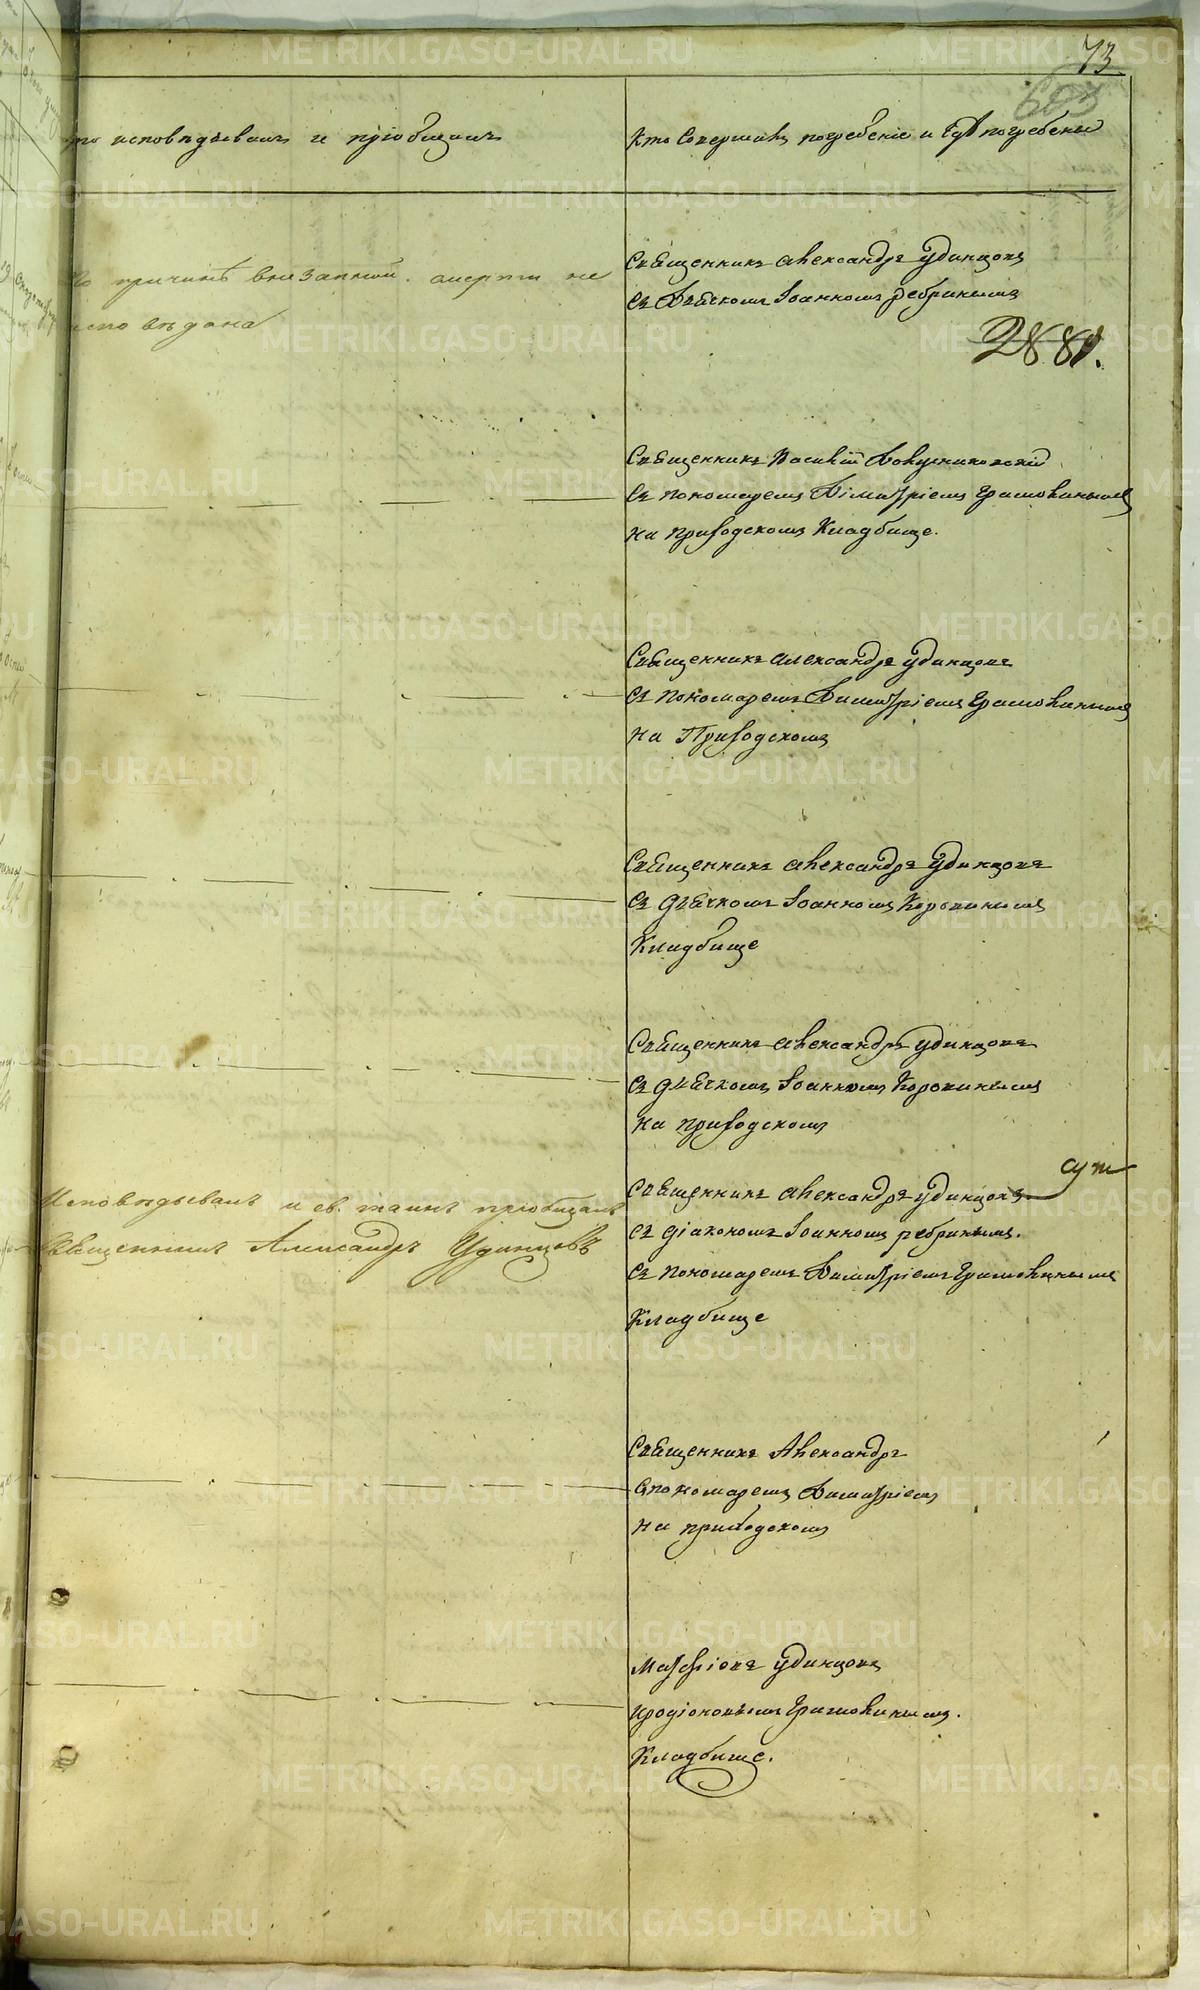 73
603
то исповѣдывалъ и пріобщалъ
Кто Совершалъ погребеніе и гдѣ погребены
По причинѣ внезапной смерти не
исповѣдана
Священникъ Александръ Удинцовъ
съ Дьячкомъ Іоанномъ Ребринымъ
2881.
Священникъ Василій
съ пономаремъ Димитріемъ
на приходскомъ Кладбище.
Священникъ Александръ Удинцовъ
съ пономаремъ Димитріемъ
на Приходскомъ
Священникъ Александръ Удинцовъ
съ дьячкомъ Іоанномъ Коровинымъ
Кладбище
Священникъ Александръ Удинцовъ
съ дьячкомъ Іоанномъ Коровинымъ
на приходскомъ
Исповѣдывалъ и св. таинъ пріобщалъ
Священникъ Александръ Удинцовъ
Священникъ Александръ Удинцовъ
съ діакономъ Іоанномъ Ребринымъ.
съ пономаремъ Димитріемъ
Кладбище
Священникъ Александръ
спономаремъ Димитріемъ
на приходскомъ
Удинцовъ
Кладбище.
METRIKI.GASO-URAL.RU